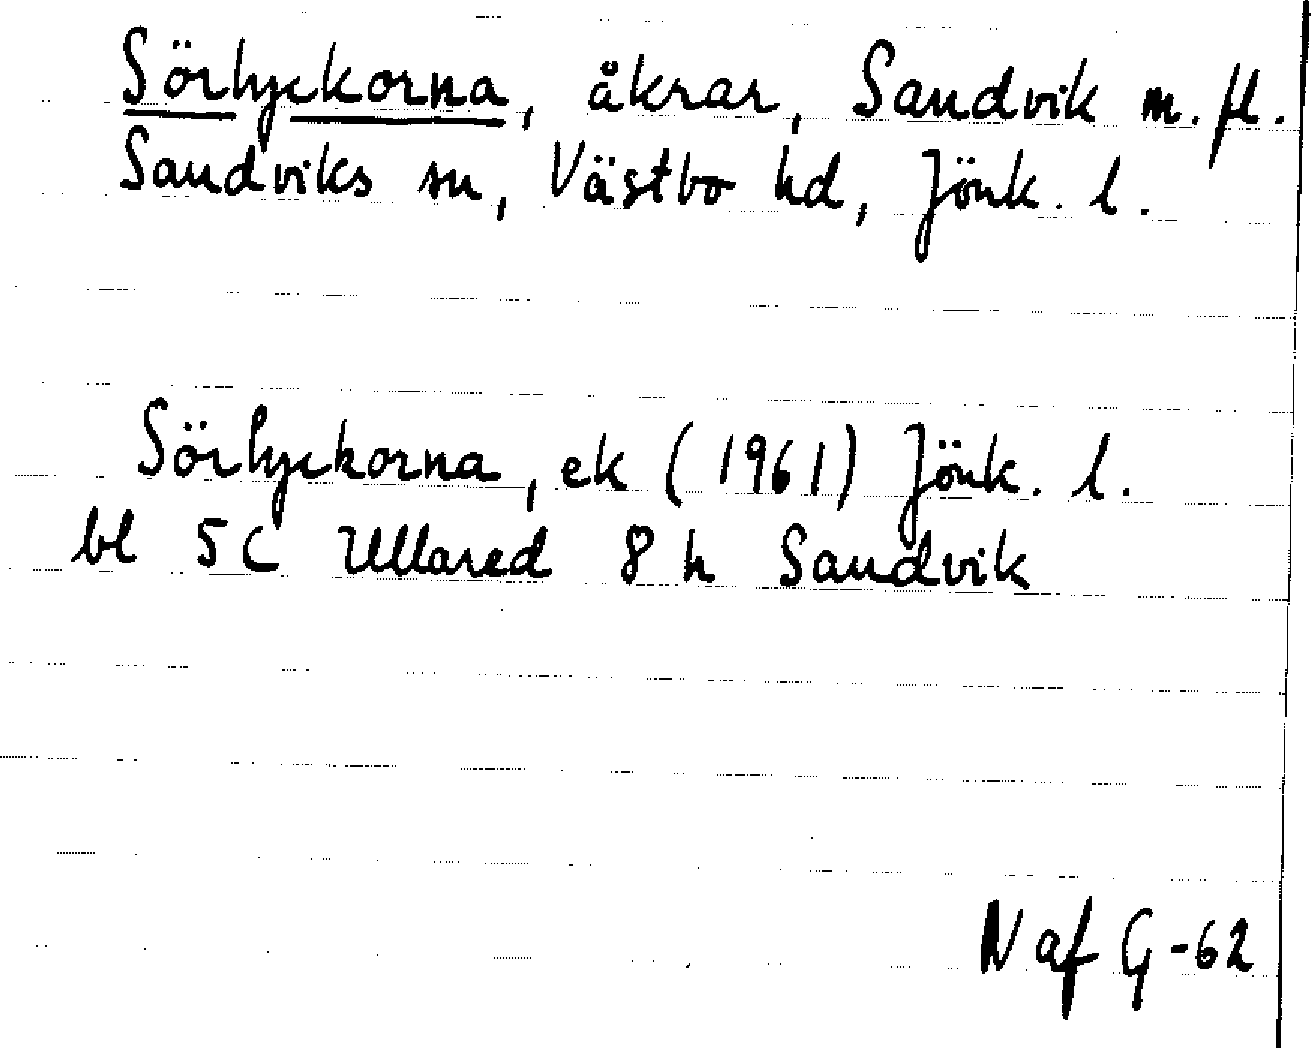 Sörlyckorna, åkrar, Sandvik m. fl.
Sandviks sn, Västbo hd, Jönk. l.
Sörlyckorna, ek (1961) Jönk. l.
bl 5C Ullared 8 h Sandvik
N af G -62